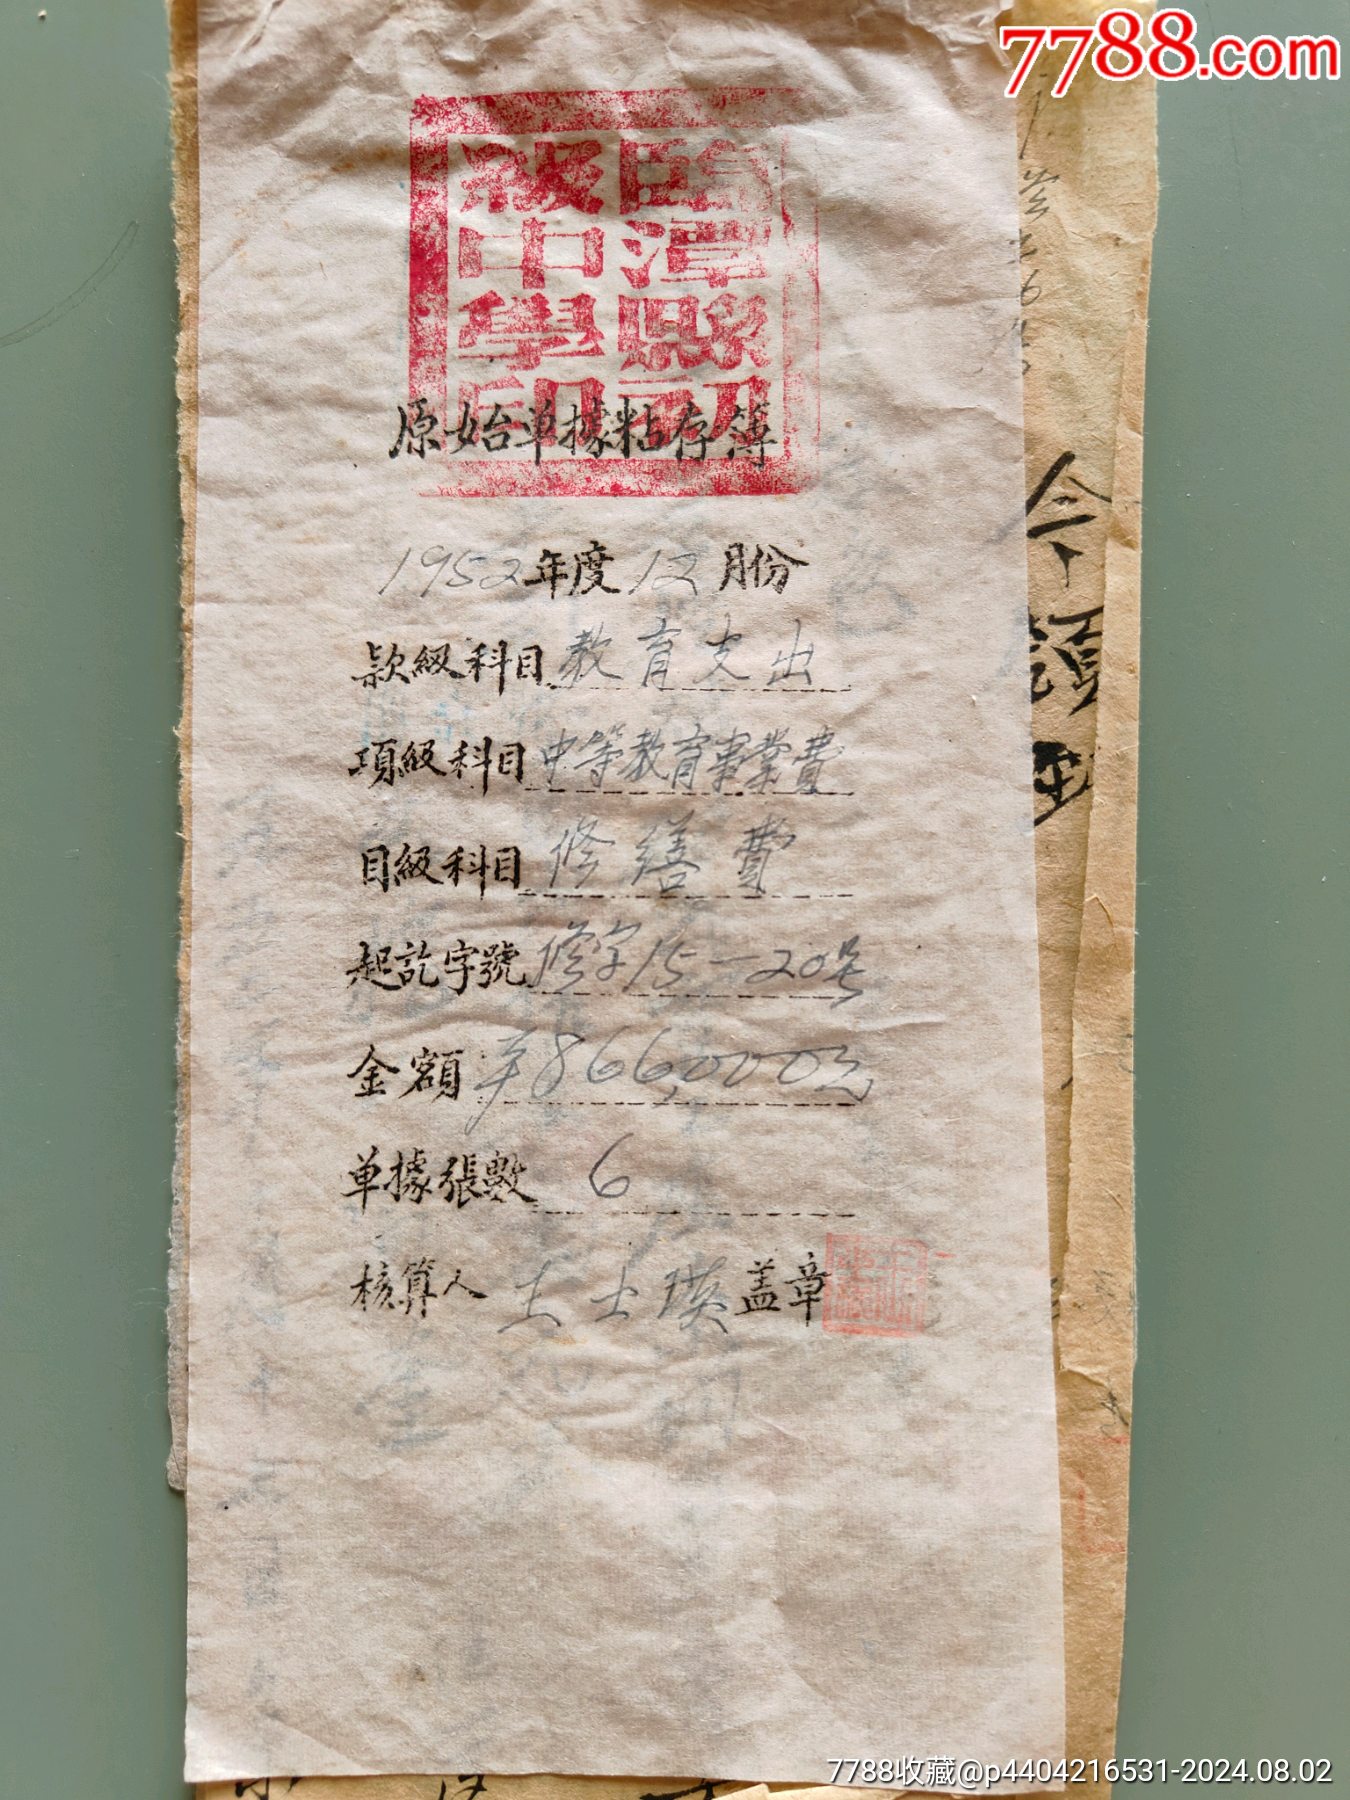 7788.com
臨潭縣初
級中學印
原始单據粘存簿
1952年度12月份
款級科目 教育支出
項級科目 中等教育事業費
目級科目 修繕費
起訖字號 修字15—20号
金額 8660000元
单據張數 6
核算人 士瑛 盖章
今
領
7788收藏@p4404216531-2024.08.02